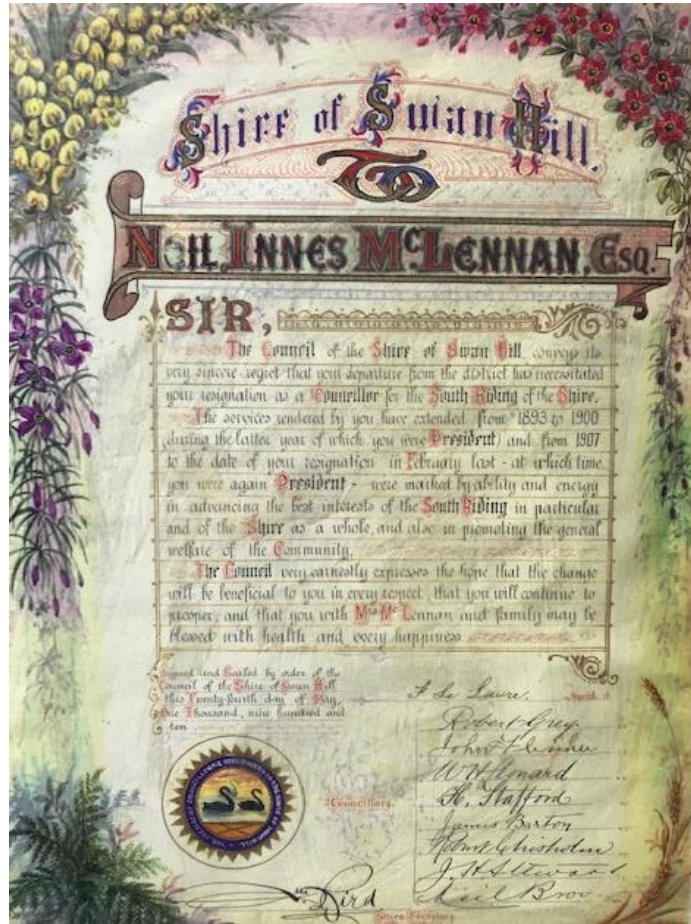 Shire of Swan Hill.
To
NEIL INNES McLENNAN, ESQ.
SIR,
The Council of the Shire of Swan Hill, conveys its
very sincere regret that your departure from the district has necessitated
your resignation as a Councillor for the South Riding of the Shire.
The services rendered by you have extended from 1893 to 1900
(during the latter year of which you were President) and from 1907
to the date of your resignation in February last - at which time
you were again President - were marked by ability and energy
in advancing the best interests of the South Riding in particular
and of the Shire as a whole, and also in promoting the general
welfare of the Community.
The Council very earnestly expresses the hope that the change
will be beneficial to you in every respect, that you will continue to
prosper, and that you with Mrs McLennan and family may be
blessed with health and every happiness
Signed and Sealed by order of the
Council of the Shire of Swan Hill
this Twenty-fourth day of May,
One Thousand, nine hundred and
ten
Robert Grey
W H
H. Stafford
James Barton
Robert Chisholm
Councillors.
Neil
Shire Secretary